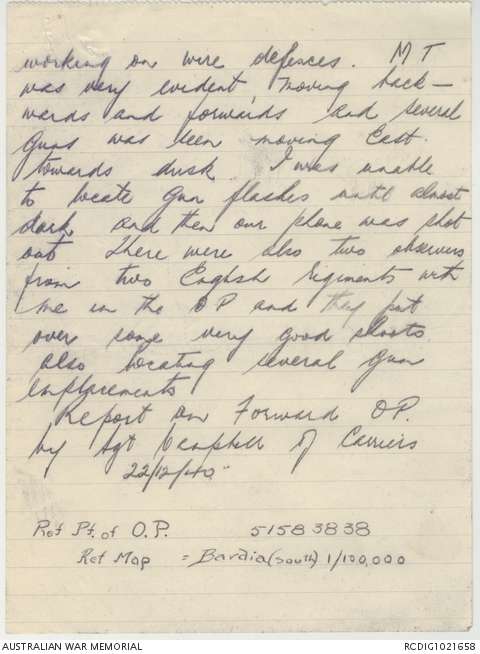 working on wire defences. M T
was very evident, moving back-
wards and forwards and several
guns was seen moving East
towards dusk. I was unable
to locate gun flashes until almost
dark and then our phone was shot
out. There were also two observers
from two English regiments with
me in the OP and they put
over some very good shoots
also locating several gun
emplacements
Report on Forward OP.
by Sgt Campbell of Carriers
22/12/40
Ref Pt. of O.P. 51583838
Ref Map = Bardia (South) 1/100,000
AUSTRALIAN WAR MEMORIAL RCDIG1021658